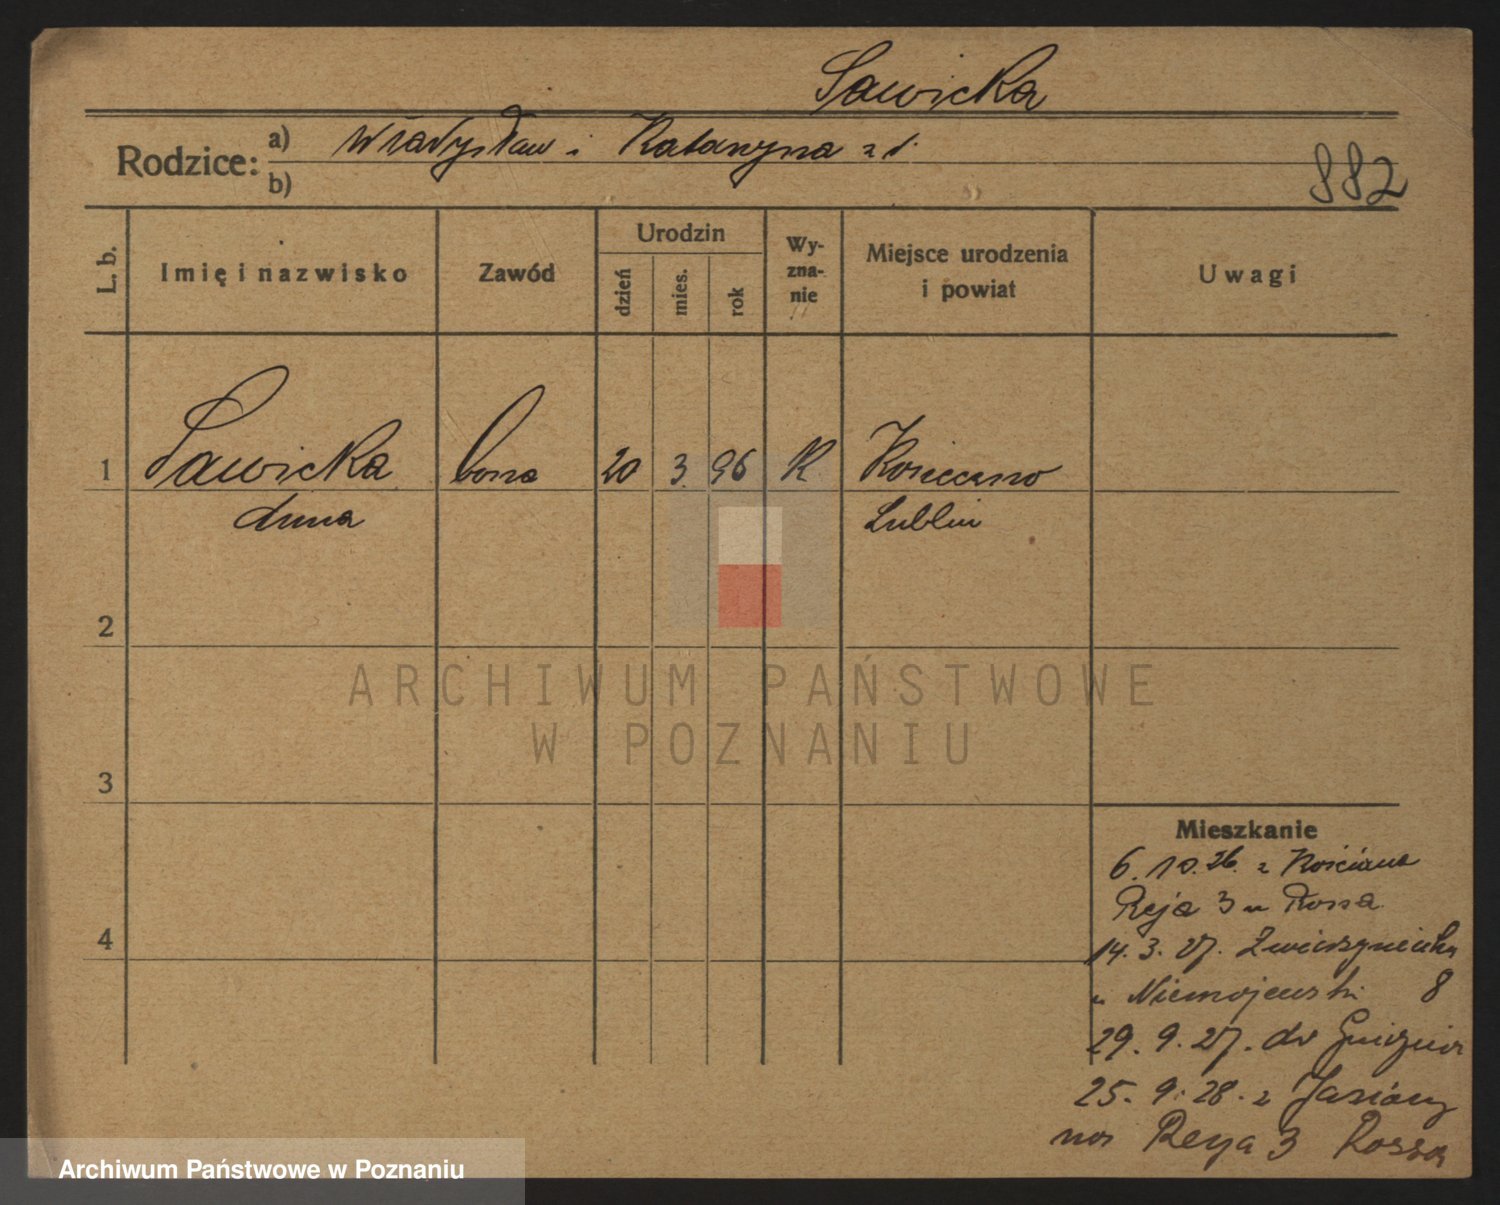 Sawicka
Rodzice: a) Władysław i Katarzyna z d.
b)
882
L. b.
Imię i nazwisko
Zawód
Urodzin
dzień
mies.
rok
Wy-
zna-
nie
Miejsce urodzenia
i powiat
Uwagi
1 Sawicka bona 20 3. 96 K
Anna Lublin
2
3
4
Mieszkanie
6. 10. 26. z Kościana
Reja 3 u Rossa
14. 3. 27. Zwierzyniecka
u Niemojewski 8
29. 9. 27. do
25. 9. 28. z
Reya 3 Rossa
ARCHIWUM PAŃSTWOWE
W POZNANIU
Archiwum Państwowe w Poznaniu